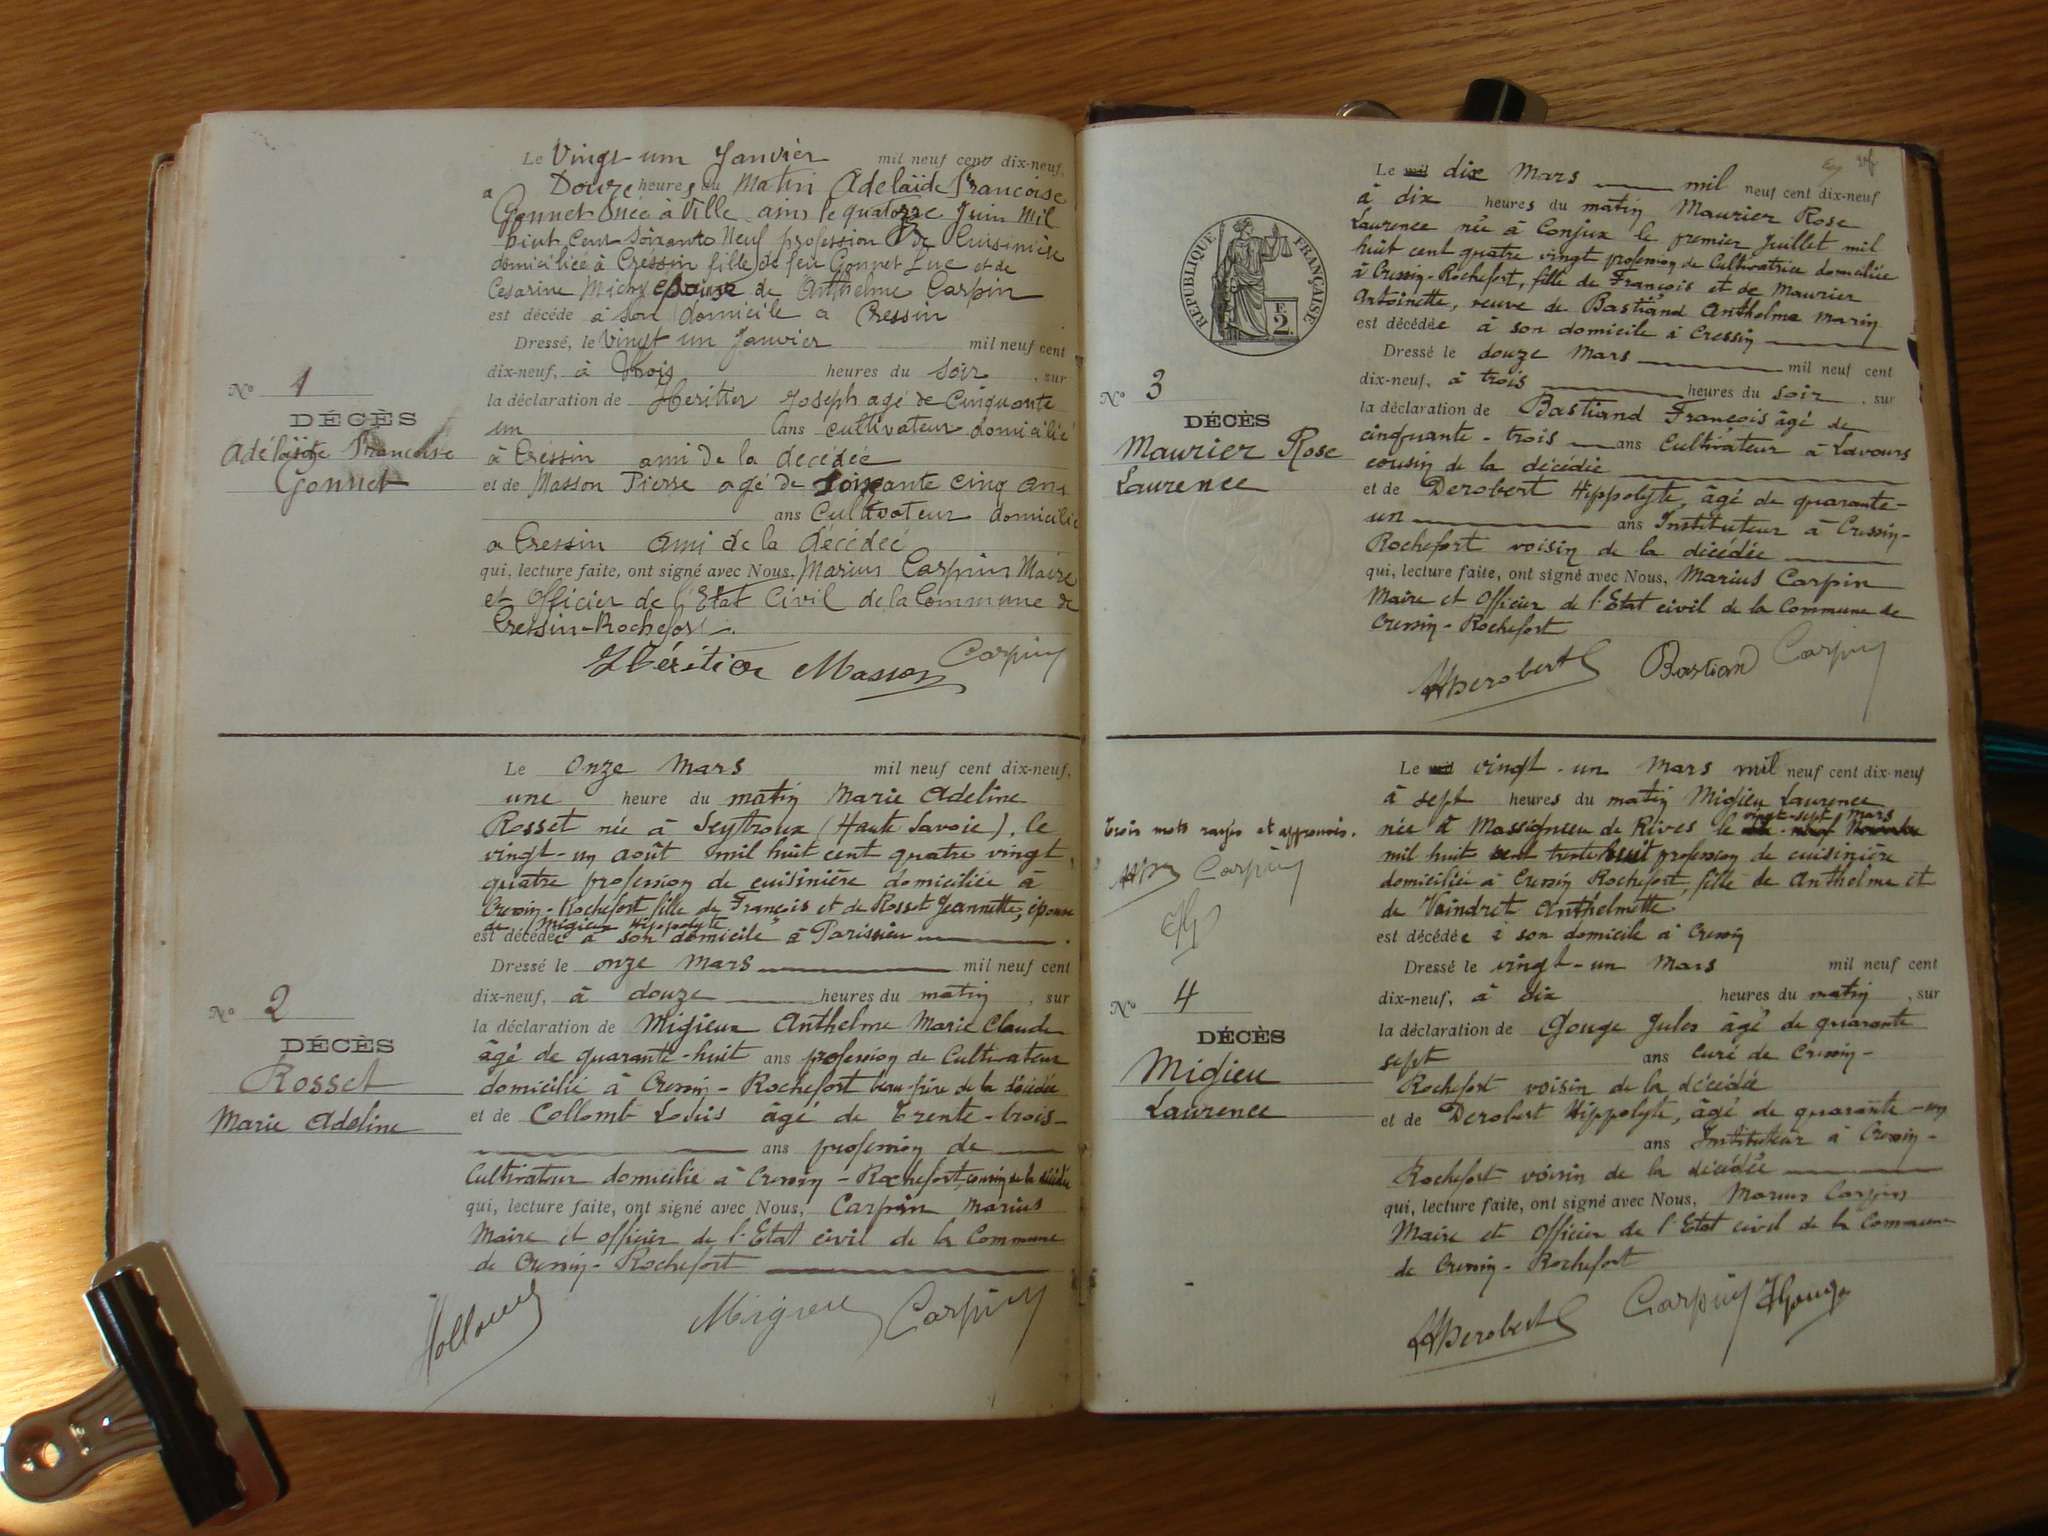 Le Vingt-un Janvier mil neuf cent dix-neuf,
a Douze heures du Matin Adelaïde Francoise
Gonnet née à Ville ains le quatorze Juin Mil
huit cent soixante Neuf profession de Cuisinière
domiciliée à Cressin fille de feu Gonnet Luc et de
Cesarine Michel épouse de Anthelme Carpin
est décédé à son domicile a Cressin
Dressé, le Vingt un Janvier mil neuf cent
dix-neuf, à trois heures du Soir, sur
la déclaration de Heritier Joseph agé de Cinquante
un ans cultivateur domicilié
à Cressin ami de la decédée
et de Masson Pierre agé de Soixante cinq ans
ans Cultivateur domicilié
a Cressin ami de la décédée
qui, lecture faite, ont signé avec Nous, Marius Carpin Maire
et Officier de l'Etat Civil de la Commune de
Cressin-Rochefort.
Héritier Masson Carpin
N° 1
DÉCÈS
Adélaïde Francoise
Gonnet
Le Onze Mars mil neuf cent dix-neuf,
une heure du matin Marie Adeline
Rosset née à Seytroux (Haute Savoie), le
vingt-un août mil huit cent quatre vingt
quatre profession de cuisinière domiciliée à
Cressin-Rochefort fille de François et de Rosset Jeannette, épouse
de Migieu Hippolyte
est décédée à son domicile à Parissieu
Dressé le onze Mars mil neuf cent
dix-neuf, à douze heures du matin, sur
la déclaration de Migieux Anthelme Marie Claude
âgé de quarante-huit ans profession de Cultivateur
domicilié à Cressin-Rochefort beau-frère de la décédée
et de Collomb Louis âgé de Trente-trois-
ans profession de
Cultivateur domicilié à Cressin-Rochefort, cousin de la décédée
qui, lecture faite, ont signé avec Nous, Carpin Marius
Maire et officier de l'Etat civil de la Commune
de Cressin-Rochefort
Migieu Carpin
N° 2
DÉCÈS
Rosset
Marie Adeline
Le mil dix Mars mil neuf cent dix-neuf
à dix heures du matin Maurier Rose
Laurence née à Conjux le premier Juillet mil
huit cent quatre vingt profession de Cultivatrice domiciliée
à Cressin-Rochefort, fille de François et de Maurier
Antoinette, veuve de Bastiand Anthelme Marin
est décédée à son domicile à Cressin
Dressé le douze Mars mil neuf cent
dix-neuf, à trois heures du soir, sur
la déclaration de Bastiand François âgé de
cinquante-trois ans Cultivateur à Lavours
cousin de la décédée
et de Derobert Hippolyte, âgé de quarante-
un ans Instituteur à Cressin-
Rochefort voisin de la décédée
qui, lecture faite, ont signé avec Nous, Marius Carpin
Maire et Officier de l'Etat civil de la Commune de
Cressin-Rochefort
HDerobert Bastiand Carpin
RÉPUBLIQUE FRANÇAISE
E
2.
N° 3
DÉCÈS
Maurier Rose
Laurence
Le mil vingt-un Mars mil neuf cent dix-neuf
à sept heures du matin Migieu Laurence
vingt-sept Mars
née à Massignieu de Rives le dix-neuf Novembre
mil huit cent trente huit profession de cuisinière
domiciliée à Cressin Rochefort, fille de Anthelme et
de Vaindret Anthelmette
est décédée à son domicile à Cressin
Dressé le vingt-un Mars mil neuf cent
dix-neuf, à dix heures du matin, sur
la déclaration de Gouge Jules âgé de quarante
sept ans curé de Cressin-
Rochefort voisin de la décédée
et de Derobert Hippolyte, âgé de quarante-un
ans Instituteur à Cressin-
Rochefort voisin de la décédée
qui, lecture faite, ont signé avec Nous, Marius Carpin
Maire et Officier de l'Etat civil de la Commune
de Cressin-Rochefort
HDerobert Carpin JGouge
trois mots rayés et approuvés.
Carpin
N° 4
DÉCÈS
Migieu
Laurence